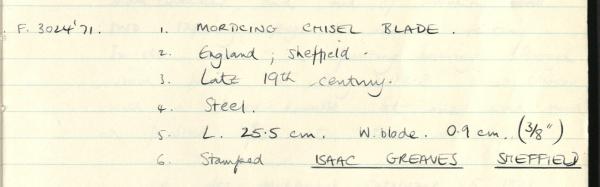 F. 3024'71. 1. MORTICING CHISEL BLADE.
2. England; Sheffield.
3. Late 19th century.
4. Steel.
5. L. 25.5 cm. W. blade. 0.9 cm. (3/8")
6. Stamped ISAAC GREAVES SHEFFIELD